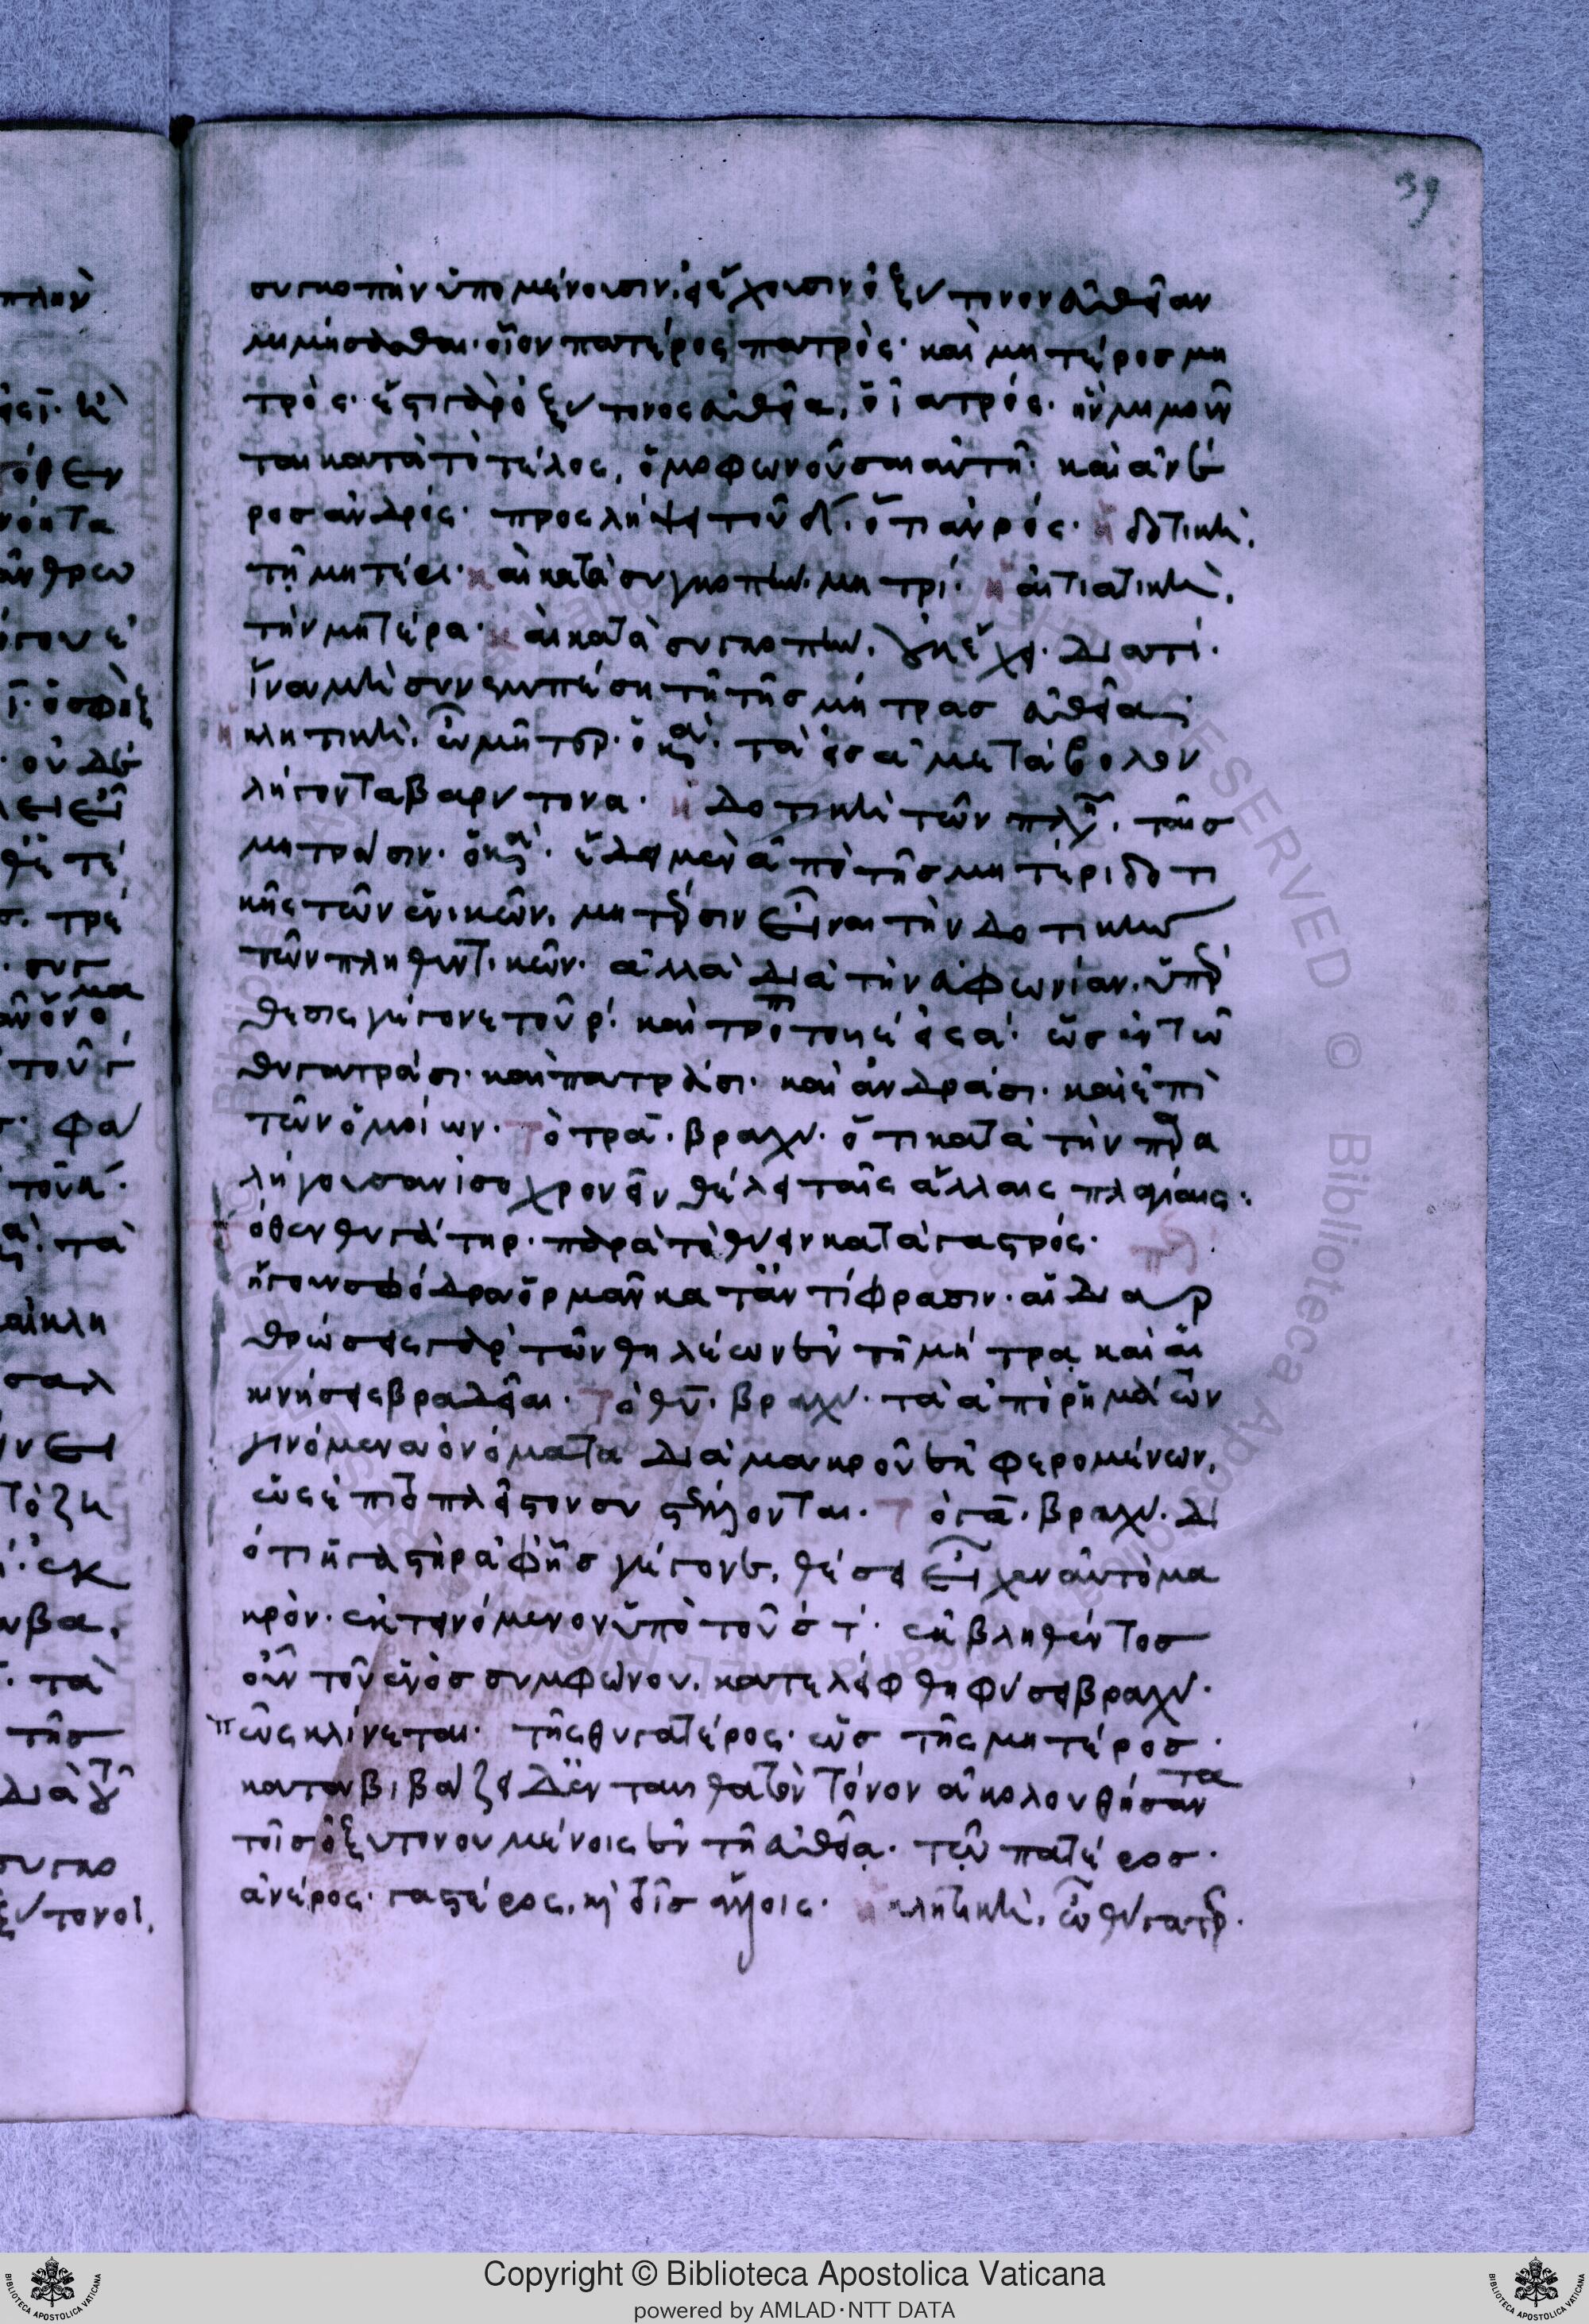 39
συγκοπὴν ὑπομένουσιν, εἰ ἔχουσιν ὀξύτονον εὐθεῖαν
μιμήσασθαι· οἷον πατέρος πατρός· καὶ μητέρος μη
τρός· ἔστι γὰρ ὀξύτονος εὐθεῖα, ὁ ἰατρός· ἣν μιμοῦν
ται κατὰ τὸ τέλος, ὁμοφωνοῦσαι αὐτῇ· καὶ ἀνέ
ρος ἀνδρός· προσλήψει τοῦ δ· ὅτι ἀνρός· ἡ δοτική,
τῇ μητέρι· καὶ κατὰ συγκοπὴν μητρί· ἡ αἰτιατική,
τὴν μητέρα· καὶ κατὰ συγκοπὴν, οὐκ ἔχει· διατί·
ἵνα μὴ συνεμπέση τῇ τῆς μήτρας εὐθεία·
ἡ κλητικὴ, ὦ μῆτερ· ὁ κανὼν· τὰ εἰς α μεταβολὴν
λήγοντα βαρύτονα· ἡ δοτικὴ τῶν πλη, ταῖς
μητράσιν· ὁ κανὼν· ἔδει μὲν ἀπὸ τῆς μητέρι δοτι
κῆς τῶν ἑνικῶν, μητρσιν εἶναι τὴν δοτικὴν
τῶν πληθυντικῶν· ἀλλὰ διὰ τὴν ἀφωνίαν, ὑπέρ
θεσις γέγονε τοῦ ρ· καὶ τροπὴ τοῦ ε εἰς α· ὡς ἐν τῶ
θυγατράσι· καὶ πατράσι· καὶ ἀνδράσι· καὶ ἐπὶ
τῶν ὁμοίων· τὸ τρα βραχύ· ὅτι κατὰ τὴν παρα
λήγουσαν ἰσοχρονεῖν θέλει ταῖς ἄλλαις πλαγίαις·
ὅθεν θυγάτηρ· παρὰ τὸ θύειν κατὰ γαστρός·
ἤγουν σφόδρα ὁρμᾶν κατ' ἀντίφρασιν· αἱ διαρ
θρώσεις γὰρ τῶν θηλέων ἐν τῇ μήτρα καὶ αἱ
κινήσεις βραδεῖαι· τὸ θυ βραχύ· τὰ ἀπὸ ῥημάτων
γινόμενα ὀνόματα διὰ μακροῦ ἐκφερομένων,
ὡς ἐπιτοπλεῖστον συστέλλονται· τὸ γα βραχύ· δι
ότι ἡ γαστὴρ ἀφ' ἧς γέγονε, θέσει εἶχεν αὐτὸ μα
κρόν· ἐκτεινόμενον ὑπὸ τοῦ σ τ· ἐκβληθέντος
οὖν τοῦ ἑνὸς συμφώνου, κατελείφθη φύσει βραχύ·
πῶς κλίνεται· τῆς θυγατέρος· ὡς τῆς μητέρος·
καταβιβάζει δὲ ἐνταυθα τὸν τόνον ἀκολουθήσαντα
τοῖς ὀξυτονουμένοις ἐν τῇ εὐθεία· τοῦ πατέρος·
ἀνέρος· γαστέρος, καὶ τοῖς ἄλλοις· ἡ κλητικὴ, ὦ θύγατερ·
Copyright © Biblioteca Apostolica Vaticana
powered by AMLAD·NTT DATA